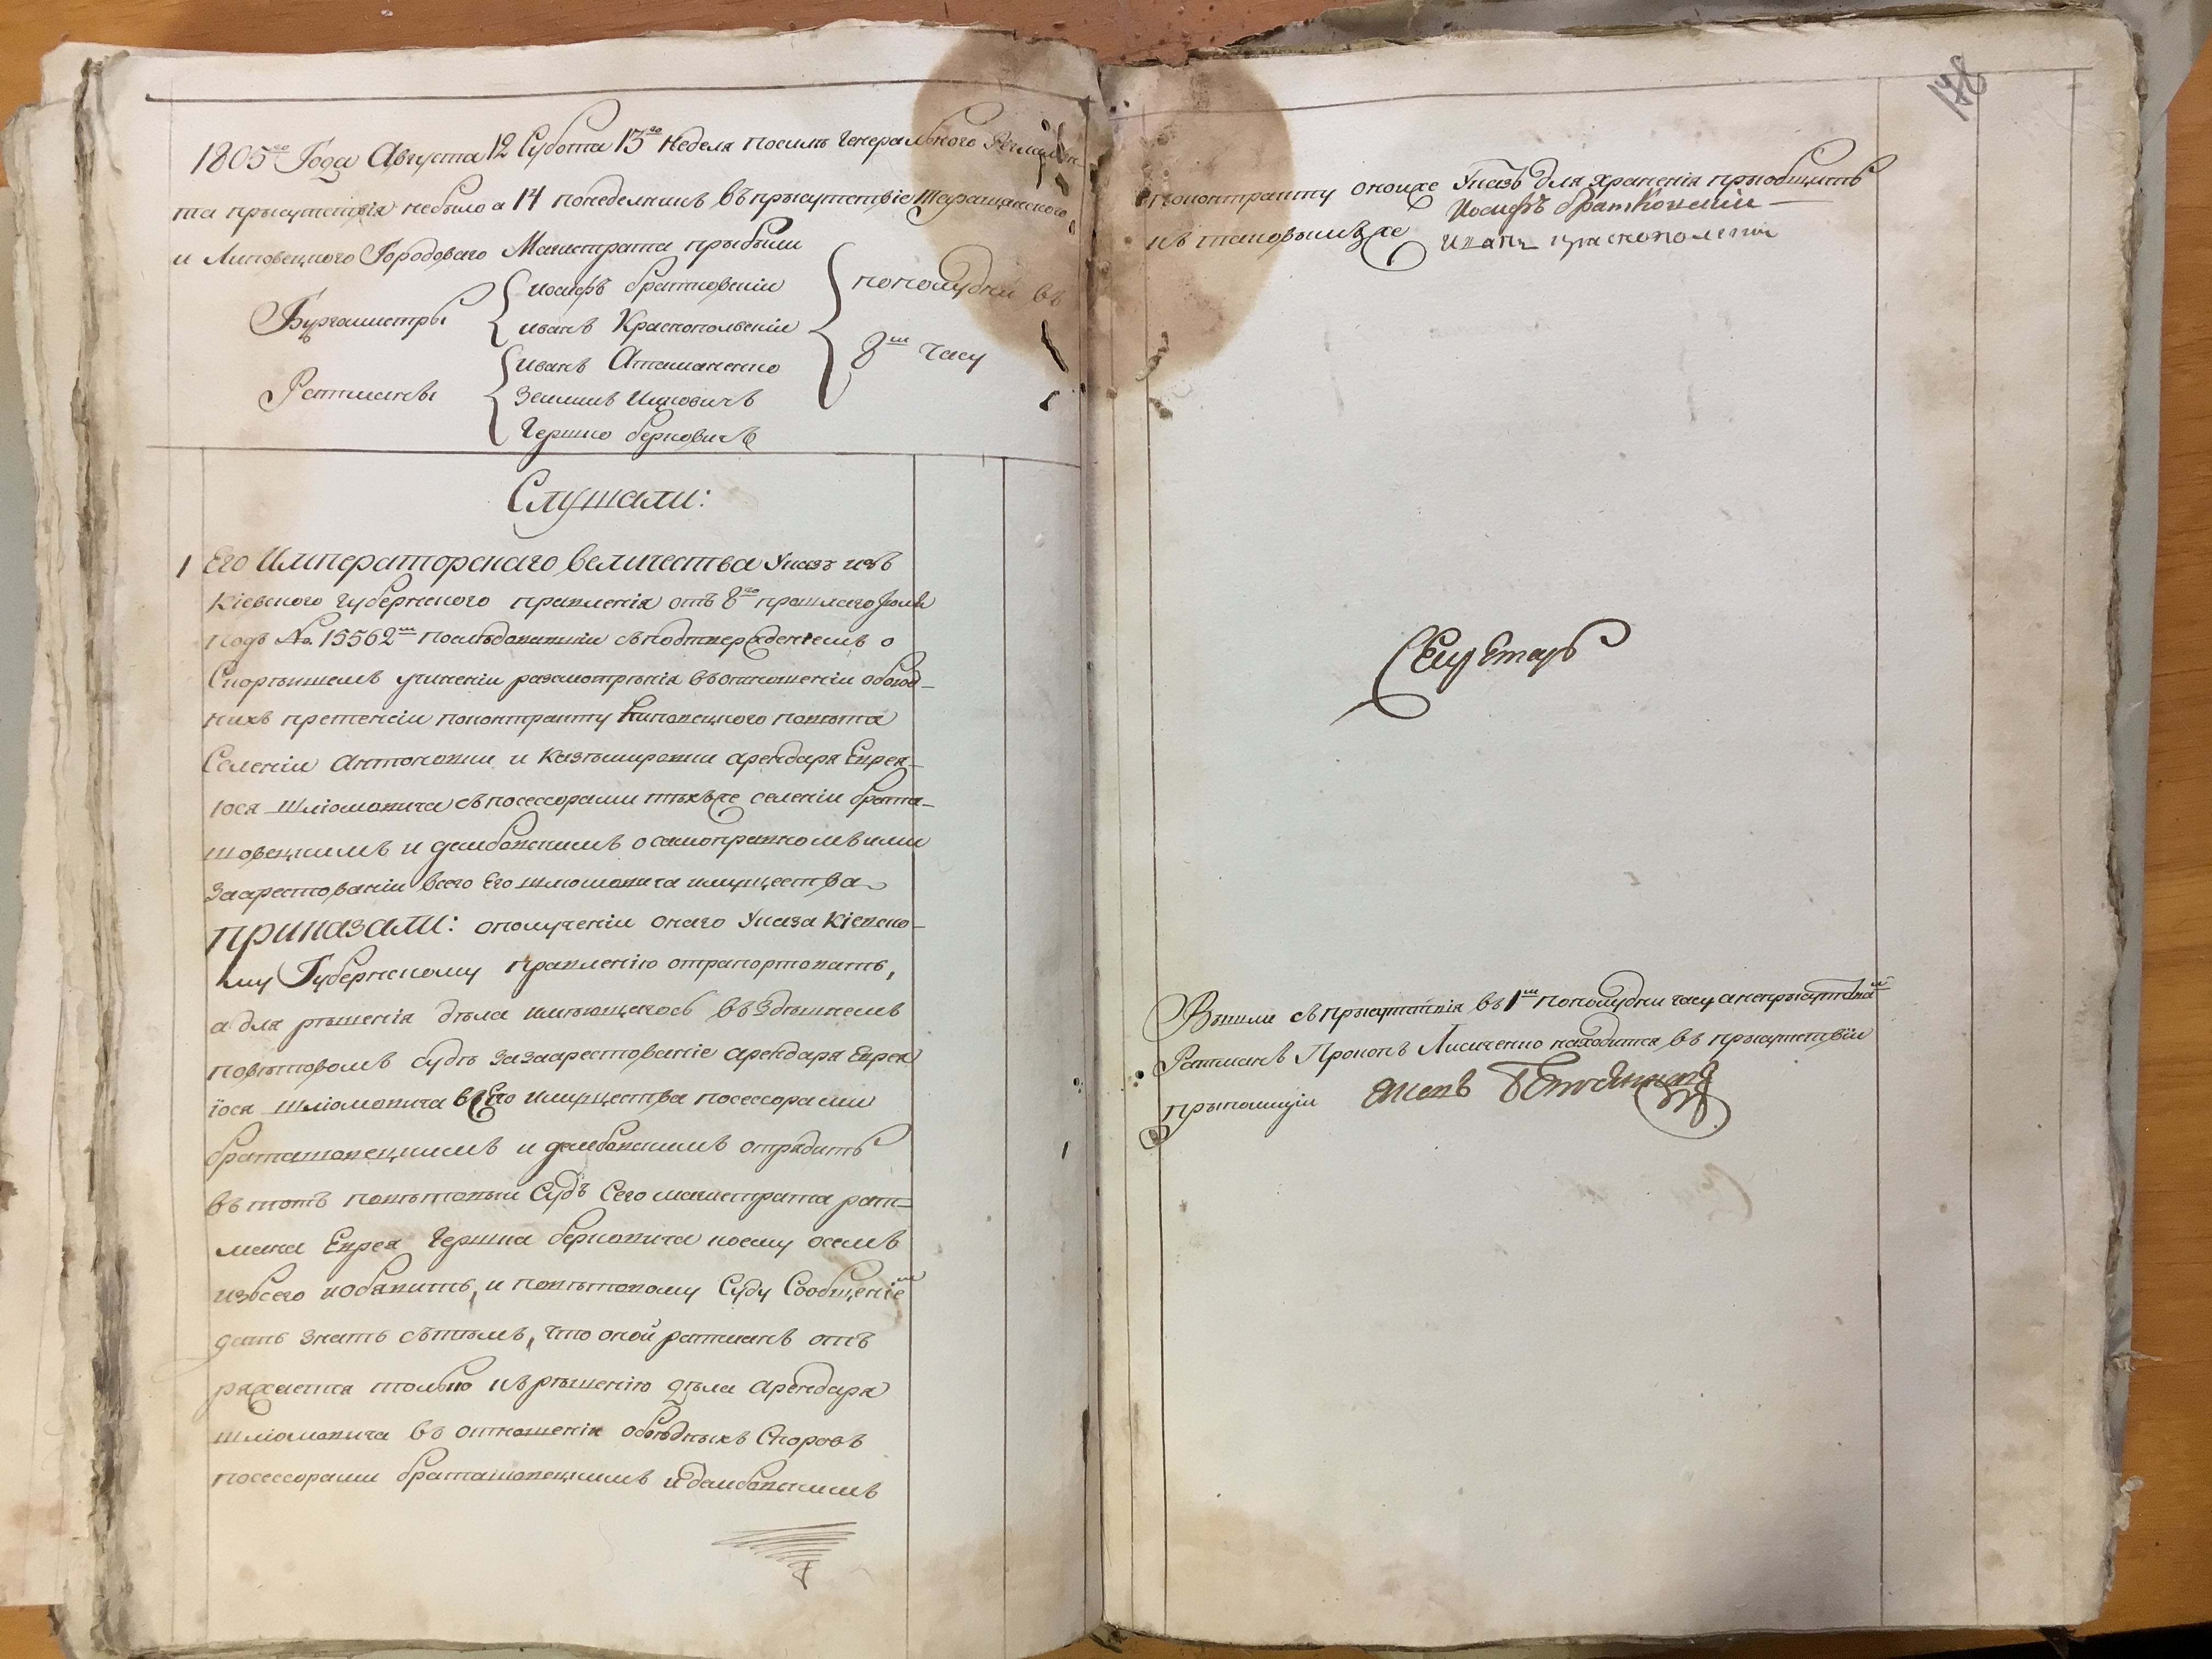 1805го Года Августа 12 Субота 13го Неделя посилѣ Генерального Регламен-
та присутствія небыло а 14 понеделникъ въ присутствіе Таращанского
и Липовецкого Городоваго Магистрата прыбыли
Бургамистры
Иосифъ братковскій
Иванъ Краснопольскій
Ратманы
Иванъ Атаманенко
Зелманъ Ицковичъ
Гершко берковичъ
пополудни въ
8ш часу
Слушали:
1 Его Императорскаго величества Указъ изъ
Кіевского Губернского правленія отъ 8го прошлаго Июля
подъ №. 15562ш последовавшій съ подтвержденіемъ о
Скорѣйшемъ учиненіи разсмотрѣнія въ отношеніи обоюд-
нихъ претенсіи поконтракту Липовецкого повѣта
Селеніи Антоновки и Казѣмировки арендара Еврея
Іося Шліомовича съ посессорами тѣхъже селеніи брата-
шовецкимъ и дамбовскимъ о самоправномъ ими
заарестованіи всего Его шлиомовича имущества
приказали: ополученіи онаго Указа Кіевско-
му Губернскому правленію отрапортовать,
а для рѣшенія дѣла имѣющагось въ Здѣшнемъ
повѣтовомъ судѣ за заарестованіе арендара Еврея
іося шліомовича всего имущества посессорами
браташовецкимъ и дамбовскимъ отрадить
въ тотъ повѣтовый Судъ Сего магистрата рат-
мана Еврея Гершка берковича коему осемъ
изъ сего и обявить, и повѣтовому Суду Сообщеніемъ
дать знать сътѣмъ, что оной ратманъ отъ
ряжается только къ рѣшенію дѣла арендара
шліомовича въ отношенія обоюдныхъ Споровъ
посессорами браташовецкимъ и дамбовскимъ
178
поконтракту оноиже Указъ для храненія прыобщить
къ таковымъже
Иосифъ братковскій
Иванъ краснополскій
Секретарь
Вышли съ прысутствія въ 1ш пополудни часу а непрысутства
Ратманъ Прокопъ Лисиченко находится въ прысутствіи
прыполиціи